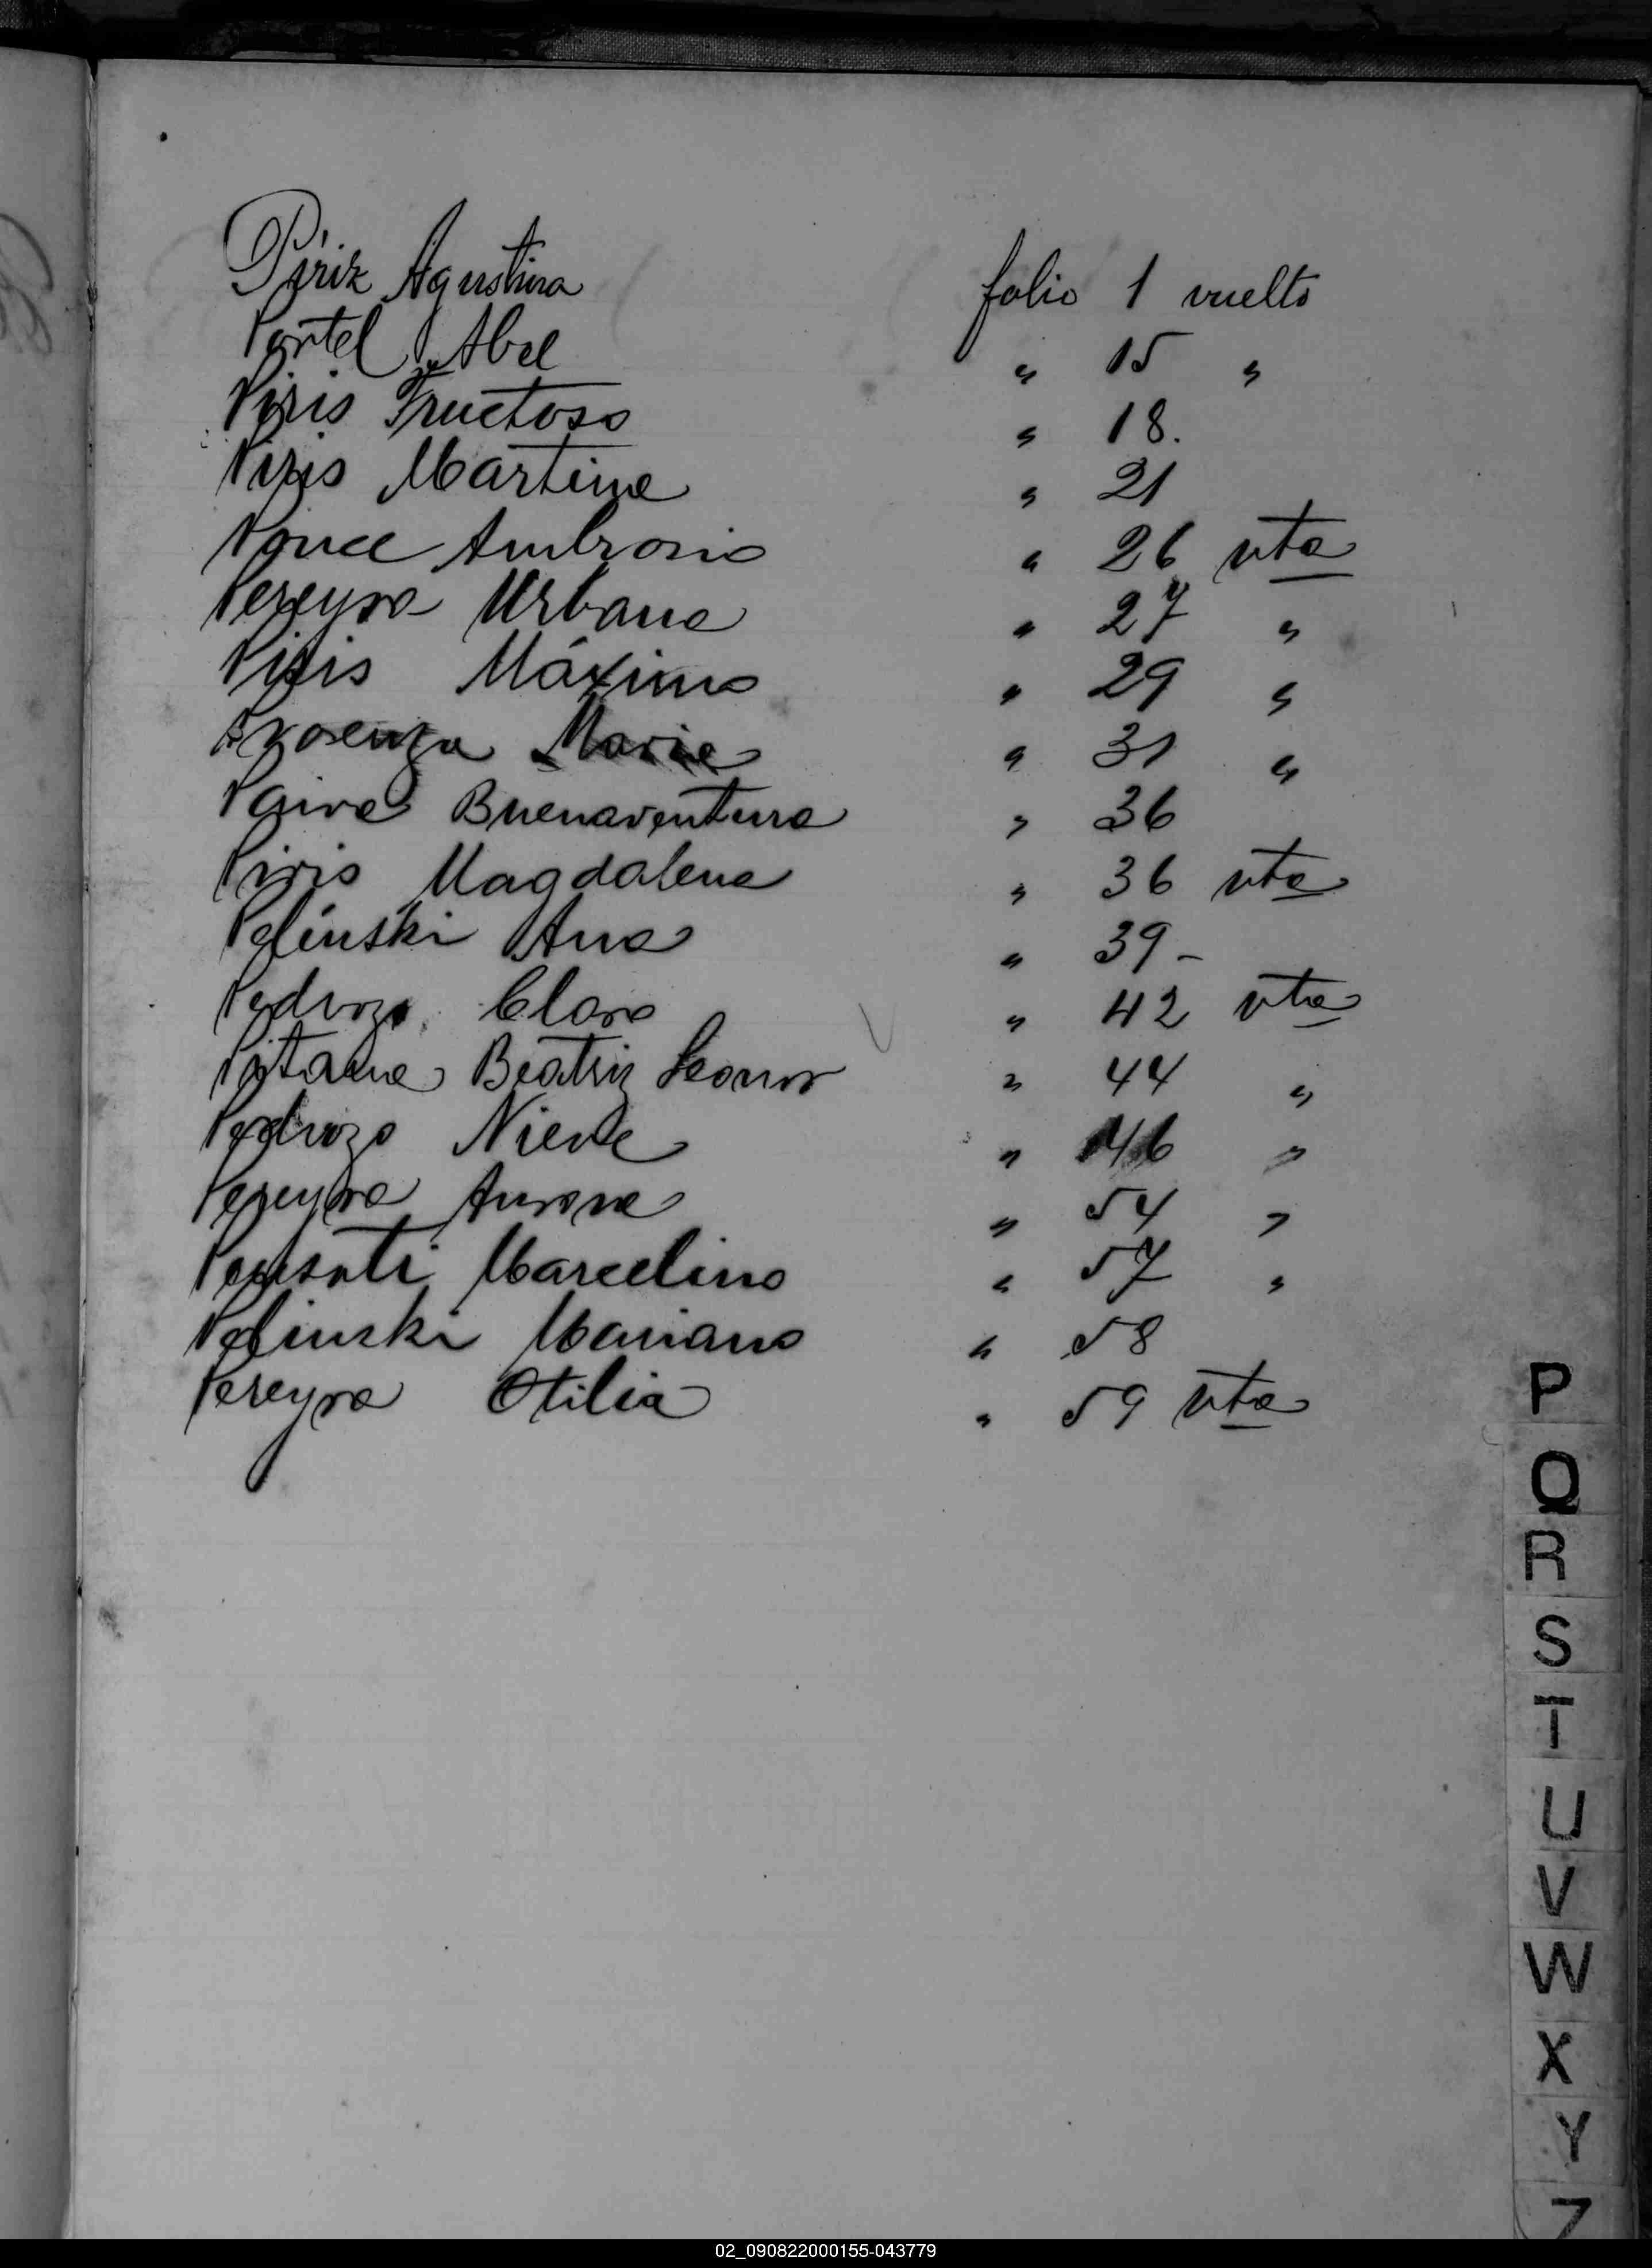 Píriz Agustina folio 1 vuelto
Portel Abel " 15 "
Piris Fructoso " 18.
Piris Martina " 21
Ponce Ambrosio " 26 vta
Pereyra Urbana " 27 "
Piris Máximo " 29 "
María " 31 "
Paiva Buenaventura " 36
Piris Magdalena " 36 vta
Pelinski Ana " 39 -
Pedrozo Clara " 42 vta
Beatriz Leonor " 44 "
Pedrozo Nieve " 46 "
Pereyra Aurora " 54 "
Marcelino " 57 "
Pelinski Mariano " 58
Pereyra Otilia " 59 vta
P
Q
R
S
T
U
V
W
X
Y
Z
02_090822000155-043779